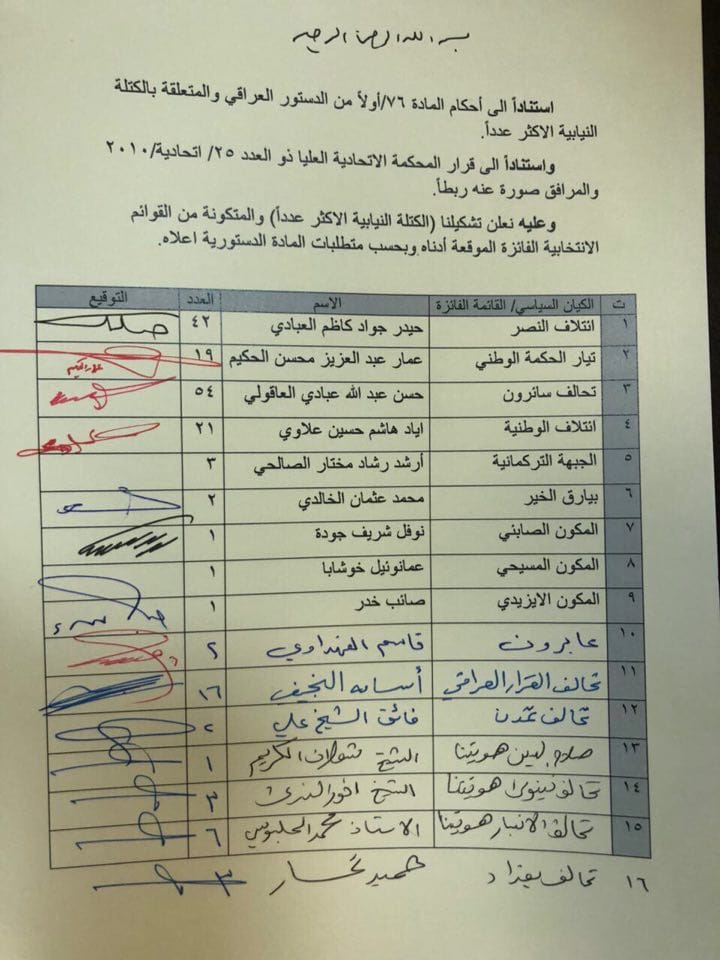 بسم الله الرحمن الرحيم
استناداً الى أحكام المادة ٧٦/أولاً من الدستور العراقي والمتعلقة بالكتلة
النيابية الاكثر عدداً.
واستناداً الى قرار المحكمة الاتحادية العليا ذو العدد ٢٥/ اتحادية/٢٠١٠
والمرافق صورة عنه ربطاً.
وعليه نعلن تشكيلنا (الكتلة النيابية الاكثر عدداً) والمتكونة من القوائم
الانتخابية الفائزة الموقعة أدناه وبحسب متطلبات المادة الدستورية اعلاه.
ت الكيان السياسي/ القائمة الفائزة الاسم العدد التوقيع
١ ائتلاف النصر حيدر جواد كاظم العبادي ٤٢
٢ تيار الحكمة الوطني عمار عبد العزيز محسن الحكيم ١٩
٣ تحالف سائرون حسن عبد الله عبادي العاقولي ٥٤
٤ ائتلاف الوطنية اياد هاشم حسين علاوي ٢١
٥ الجبهة التركمانية أرشد رشاد مختار الصالحي ٣
٦ بيارق الخير محمد عثمان الخالدي ٢
٧ المكون الصابئي نوفل شريف جودة ١
٨ المكون المسيحي عمانوئيل خوشابا ١
٩ المكون الايزيدي صائب خدر ١
١٠ عابرون قاسم الفهداوي ٢
١١ تحالف القرار العراقي أسامه النجيفي ١٦
١٢ تحالف تمدن فائق الشيخ علي ٢
١٣ صلاح الدين هويتنا الشيخ الكريم ١
١٤ تحالف نينوى هويتنا الشيخ ٣
١٥ تحالف الانبار هويتنا الاستاذ محمد الحلبوسي ٦
١٦ تحالف بغداد ٣